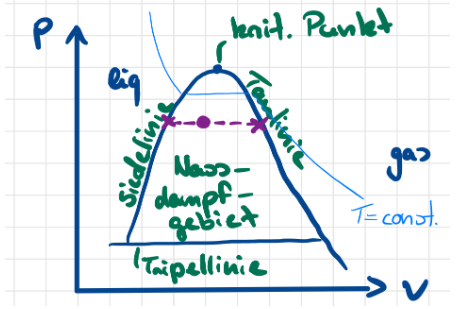 krit. Punkt
P
liq
Siedelinie
Taulinie
Nass-
dampf-
gebiet
gas
T=const.
Tripellinie
V